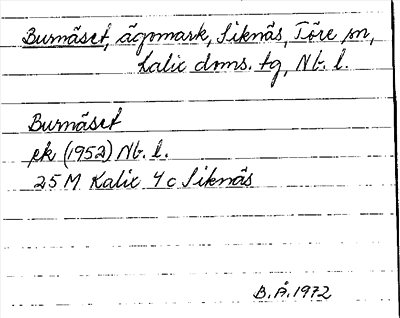 Burnäset, ägomark, Siknäs, Töre sn,
Kalix dms. tg, Nb. l.
Burnäset
ek (1952) Nb. l.
25 M Kalix 4 c Siknäs
B. Å. 1972